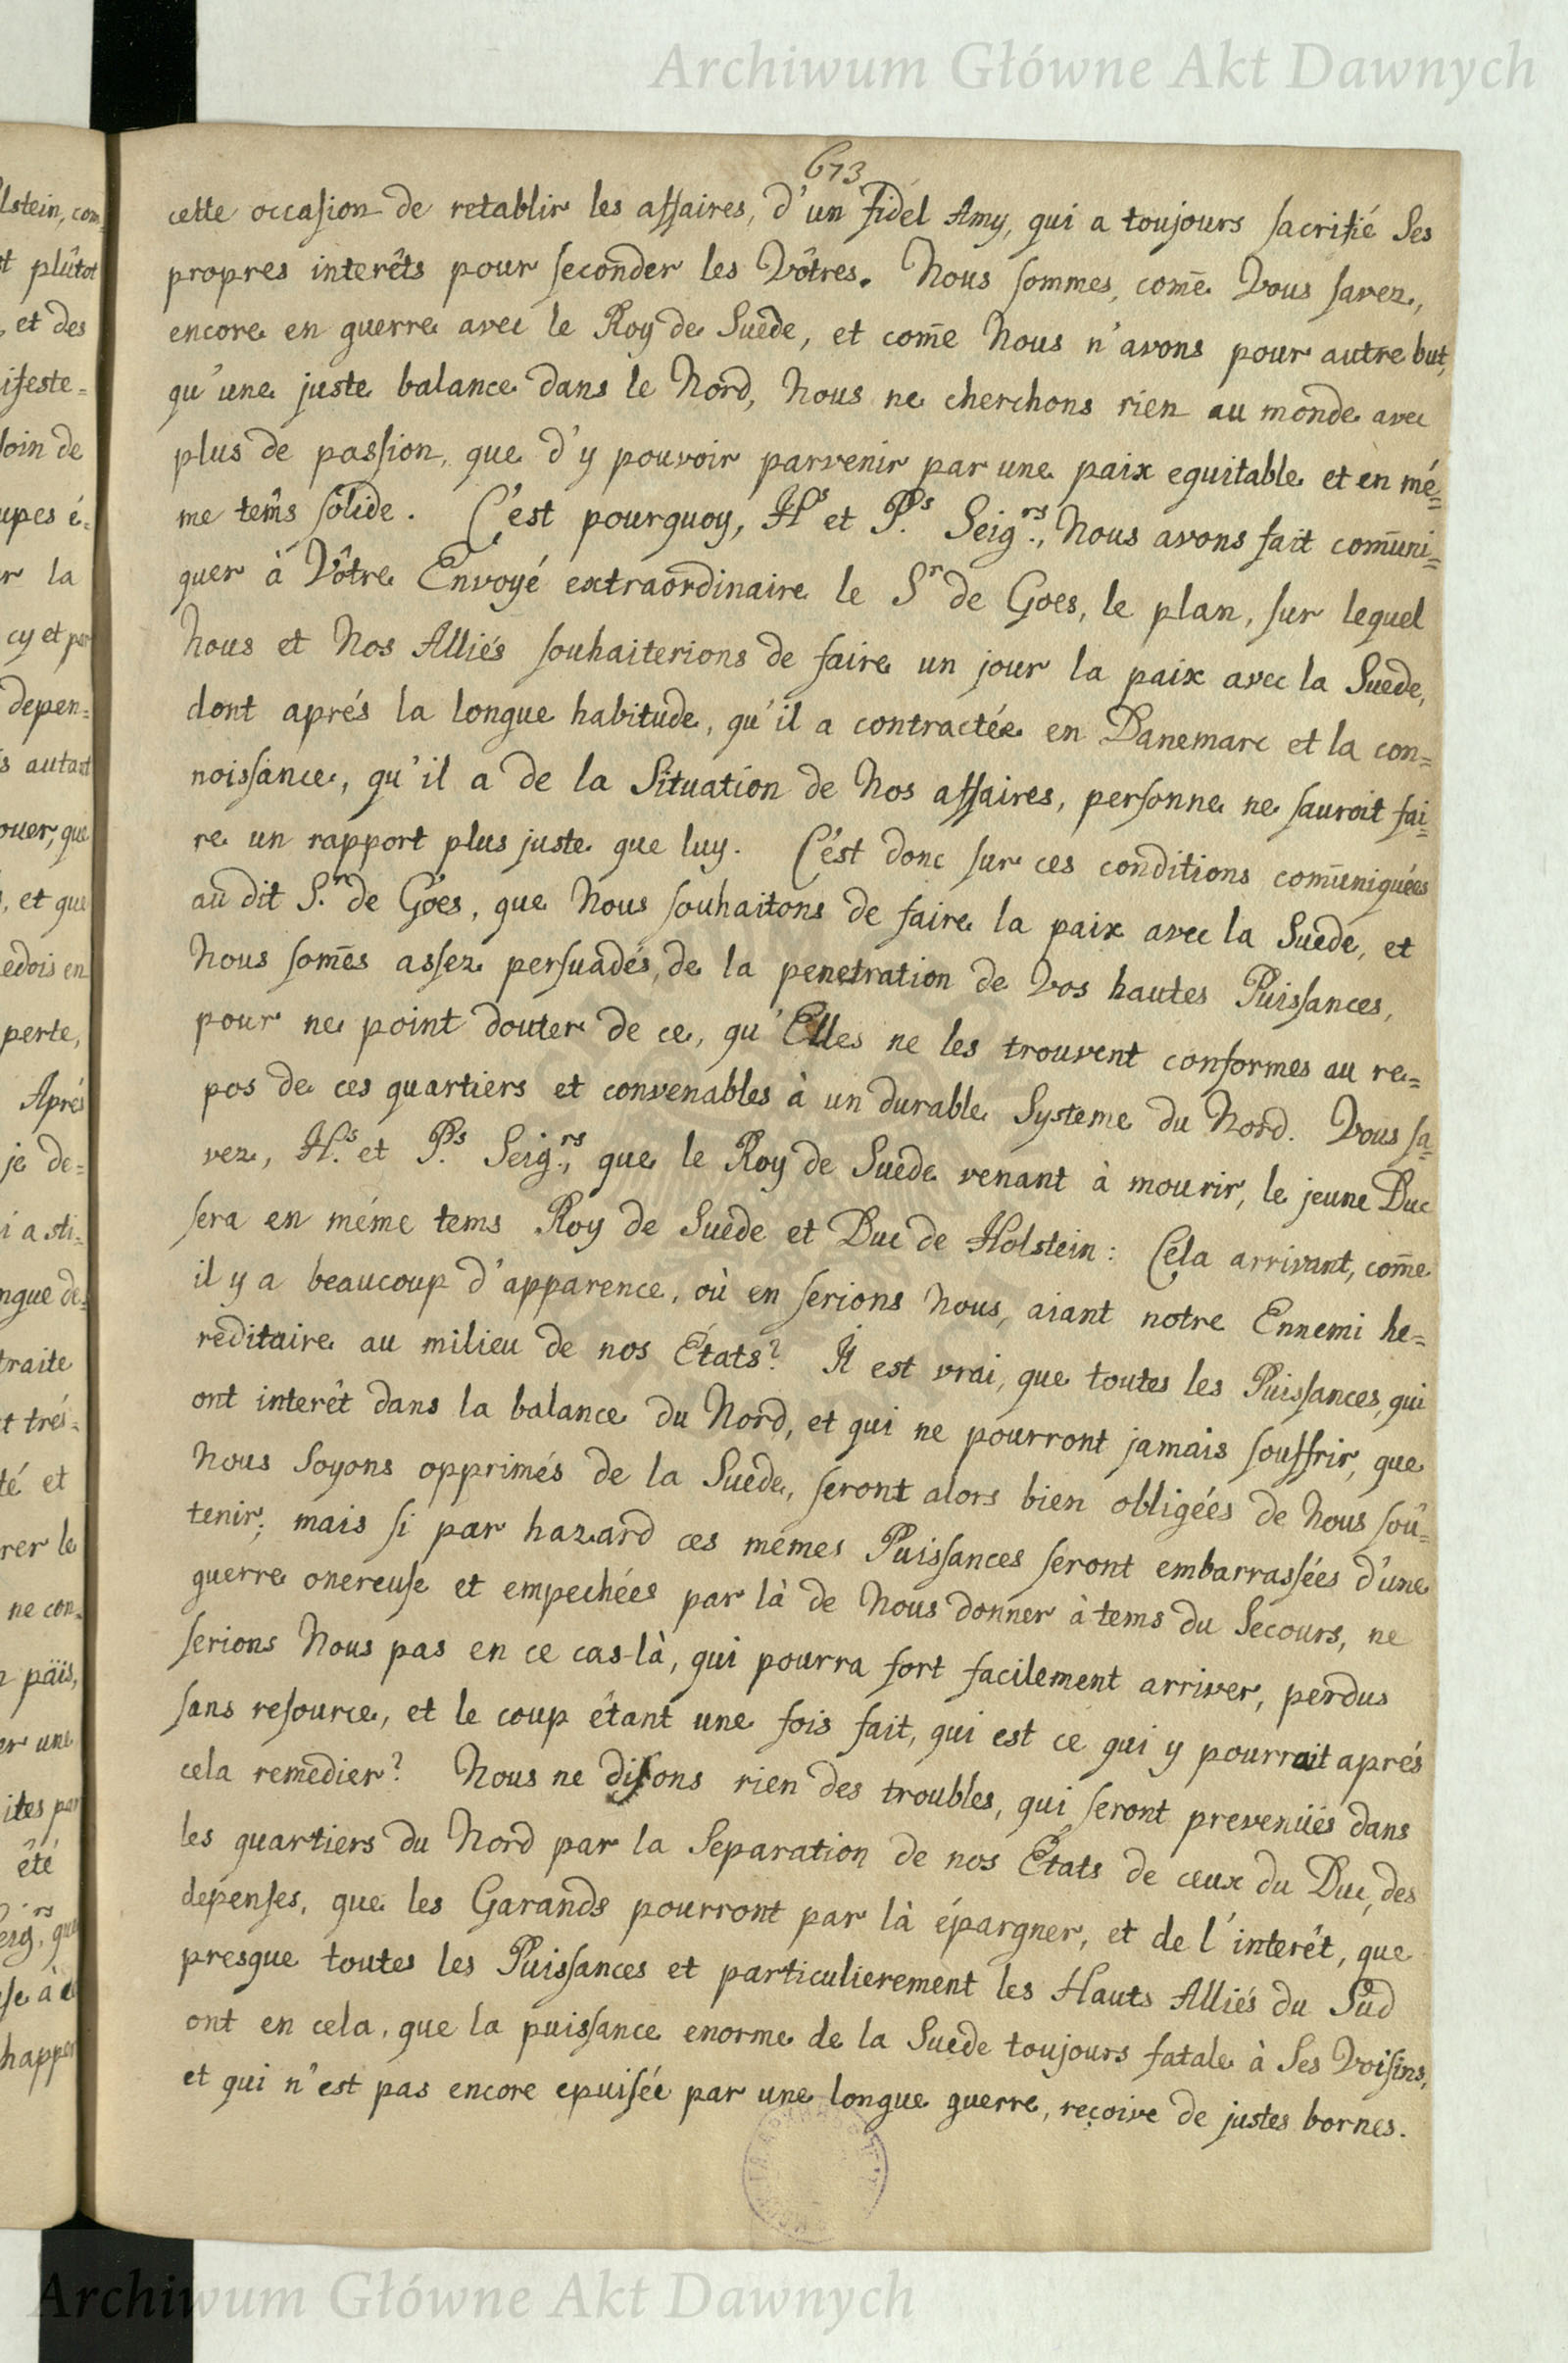 Archiwum Główne Akt Dawnych
673
cette occasion de retablir les affaires, d'un fidel Amy, qui a toujours sacrifié Ses
propres interêts pour seconder les Vôtres. Nous sommes, com̄e Vous savez,
encore en guerre avec le Roy de Suede, et com̄e Nous n'avons pour autre but,
qu'une juste balance dans le Nord, Nous ne cherchons rien au monde avec
plus de passion, que d'y pouvoir parvenir par une paix equitable et en mé=
me tem̃s solide. C'est pourquoy, H.s et P.s Seig.rs, Nous avons fait com̄uni=
quer à Vôtre Envoyé extraordinaire le S.r de Goes, le plan, sur lequel
Nous et Nos Alliés souhaiterions de faire un jour la paix avec la Suede,
dont aprés la longue habitude, qu'il a contractée en Danemarc et la con=
noissance, qu'il a de la Situation de Nos affaires, personne ne sauroit fai=
re un rapport plus juste que luy. C'est donc sur ces conditions com̄uniquées
au dit S.r de Goes, que Nous souhaitons de faire la paix avec la Suede, et
Nous som̄es assez persuadés, de la penetration de Vos hautes Puissances,
pour ne point douter de ce, qu'Elles ne les trouvent conformes au re=
pos de ces quartiers et convenables à un durable Systeme du Nord. Vous sa=
vez, H.s et P.s Seig.rs, que le Roy de Suede venant à mourir, le jeune Duc
sera en méme tems Roy de Suede et Duc de Holstein: Cela arrivant, com̄e
il y a beaucoup d'apparence, où en serions Nous, aiant notre Ennemi he=
reditaire au milieu de nos États? Il est vrai, que toutes les Puissances, qui
ont interêt dans la balance du Nord, et qui ne pourront jamais souffrir, que
Nous Soyons opprimés de la Suede, seront alors bien obligées de Nous soû=
tenir; mais si par hazard ces mémes Puissances seront embarrassées d'une
guerre onereuse et empechées par là de Nous donner à tems du Secours, ne
serions Nous pas en ce cas-là, qui pourra fort facilement arriver, perdus
sans resource, et le coup étant une fois fait, qui est ce qui y pourrait aprés
cela remedier? Nous ne disons rien des troubles, qui seront prevenües dans
les quartiers du Nord par la Separation de nos États de ceux du Duc, des
depenses, que les Garands pourront par là épargner, et de l'interêt, que
presque toutes les Puissances et particulierement les Hauts Alliés du Sud
ont en cela, que la puissance enorme de la Suede toujours fatale à Ses Voisins,
et qui n'est pas encore epuisée par une longue guerre, reçoive de justes bornes.
Archiwum Główne Akt Dawnych